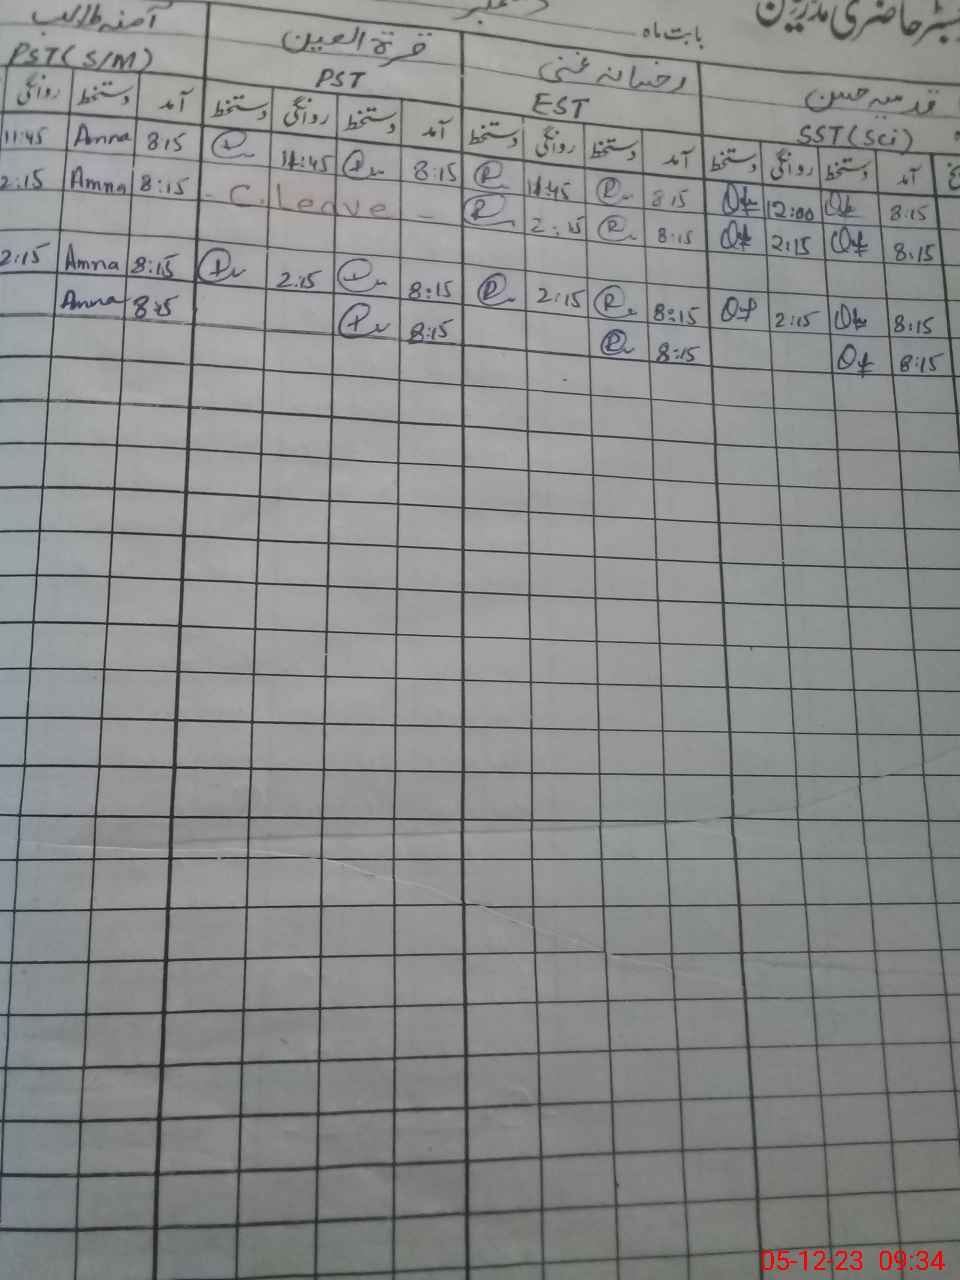 رجسٹر حاضری مدرسین
بابت ماہ دسمبر
قدسیہ حسن رخسانہ غنی قرۃ العین آمنہ طالب
SST (Sci) EST PST PST (S/M)
آمد دستخط روانگی دستخط آمد دستخط روانگی دستخط آمد دستخط روانگی دستخط آمد دستخط روانگی
8:15 12:00 8:15 11:45 8:15 11:45 8:15 Amna 11:45
8:15 2:15 8:15 2:15 - C. Leave - 8:15 Amna 2:15
8:15 2:15 8:15 2:15 8:15 2:15 8:15 Amna 2:15
8:15 8:15 8:15 8:15 Amna
05-12-23 09:34